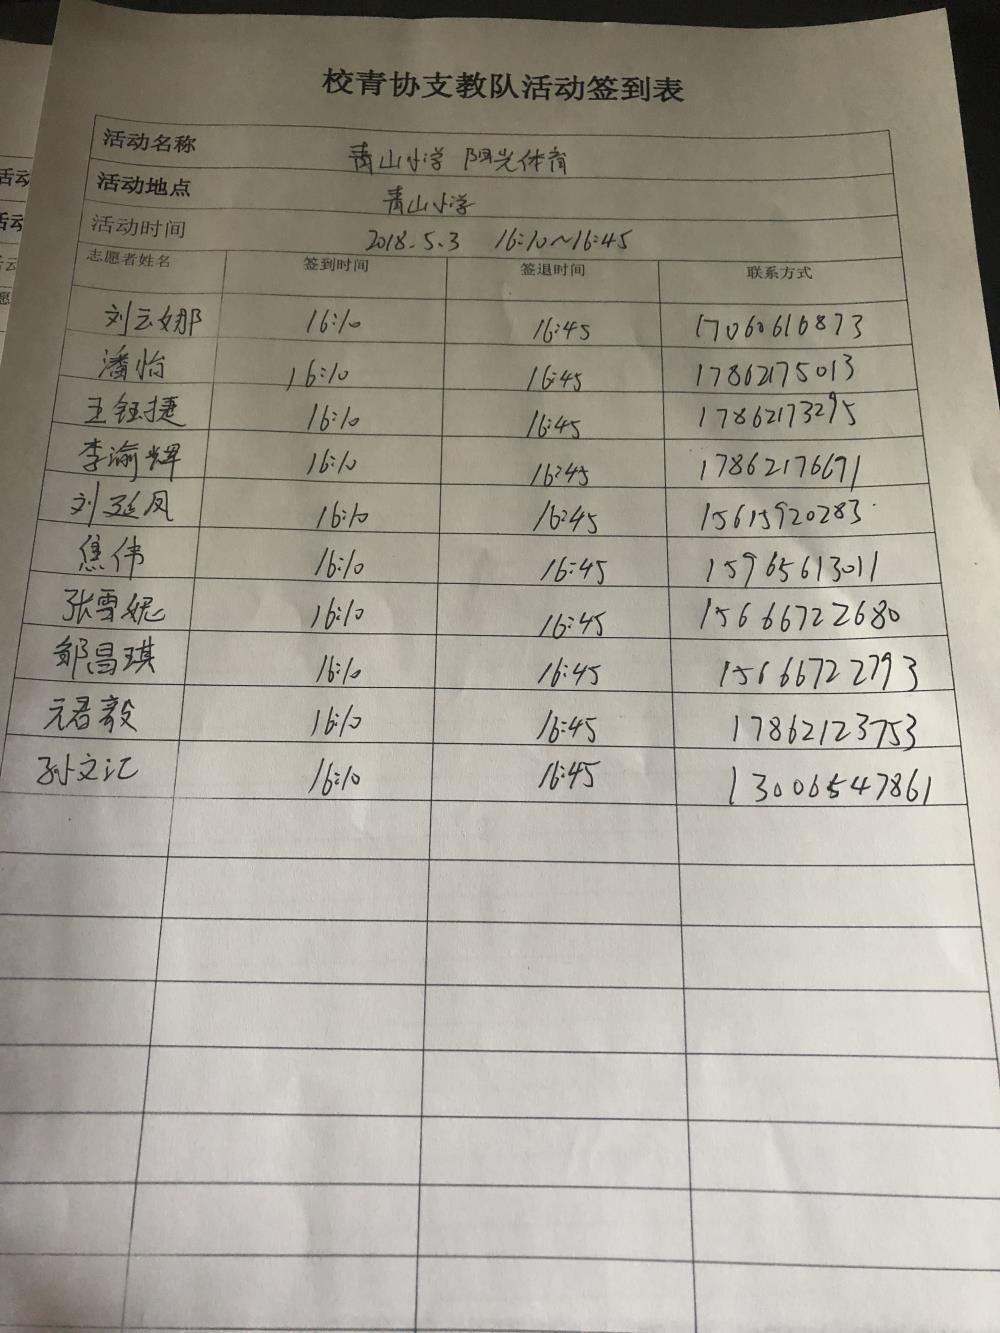 校青协支教队活动签到表
活动名称 青山小学 阳光体育
活动地点 青山小学
活动时间 2018.5.3 16:10~16:45
志愿者姓名 签到时间 签退时间 联系方式
刘云娜 16:10 16:45 17060616873
潘怡 16:10 16:45 17862175013
王钰捷 16:10 16:45 17862173295
李渝辉 16:10 16:45 17862176671
刘延凤 16:10 16:45 15615920283
焦伟 16:10 16:45 15965613011
张雪妮 16:10 16:45 15666722680
邹昌琪 16:10 16:45 15666722793
元君毅 16:10 16:45 17862123753
孙文汇 16:10 16:45 13006547861